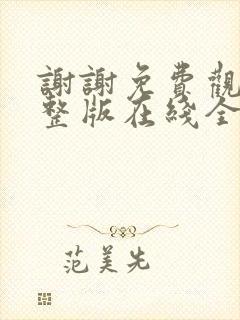 謝謝免費觀
整版在綫全
范美先